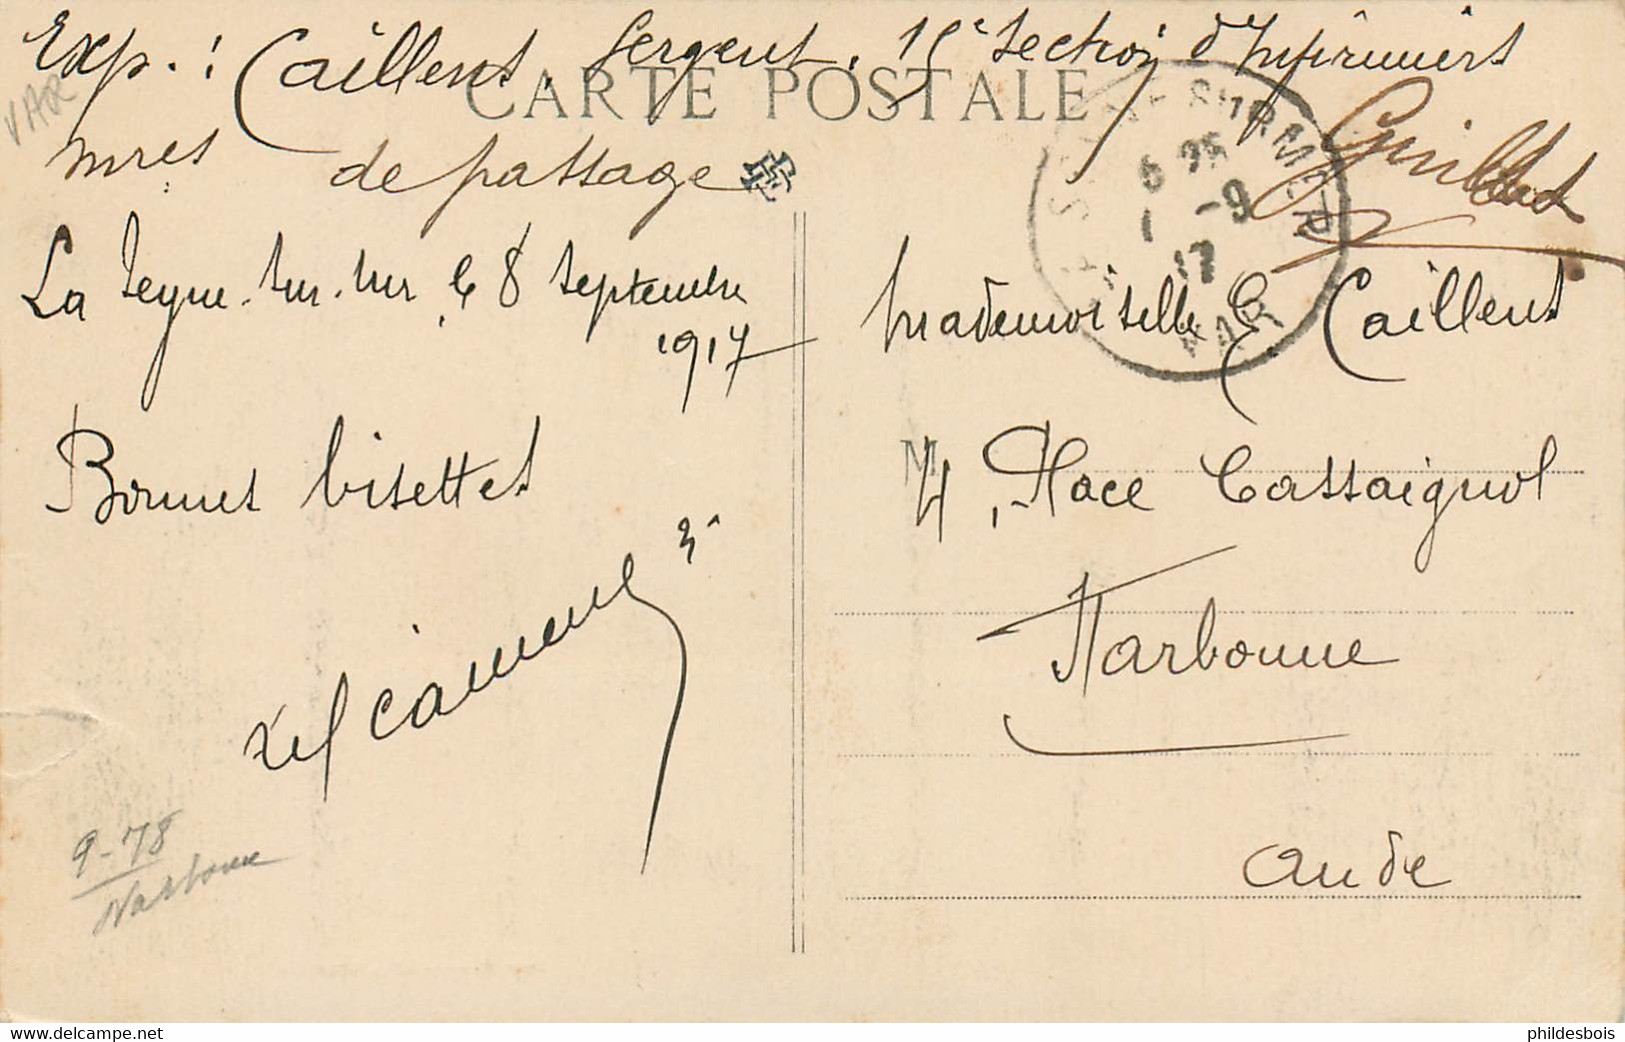 Exp. : Caillens, Sergent, 15e Section d'Infirmiers
VAR
CARTE POSTALE
mres de passage
La Seyne-sur-mer, le 8 Septembre
1917
Bonnes bisettes
Mademoiselle E. Caillens
M
4, Place Cassaignol
Narbonne
Aude
SUR MER
-9
17
VAR
9-78
Narbonne
www.delcampe.net
phildesbois